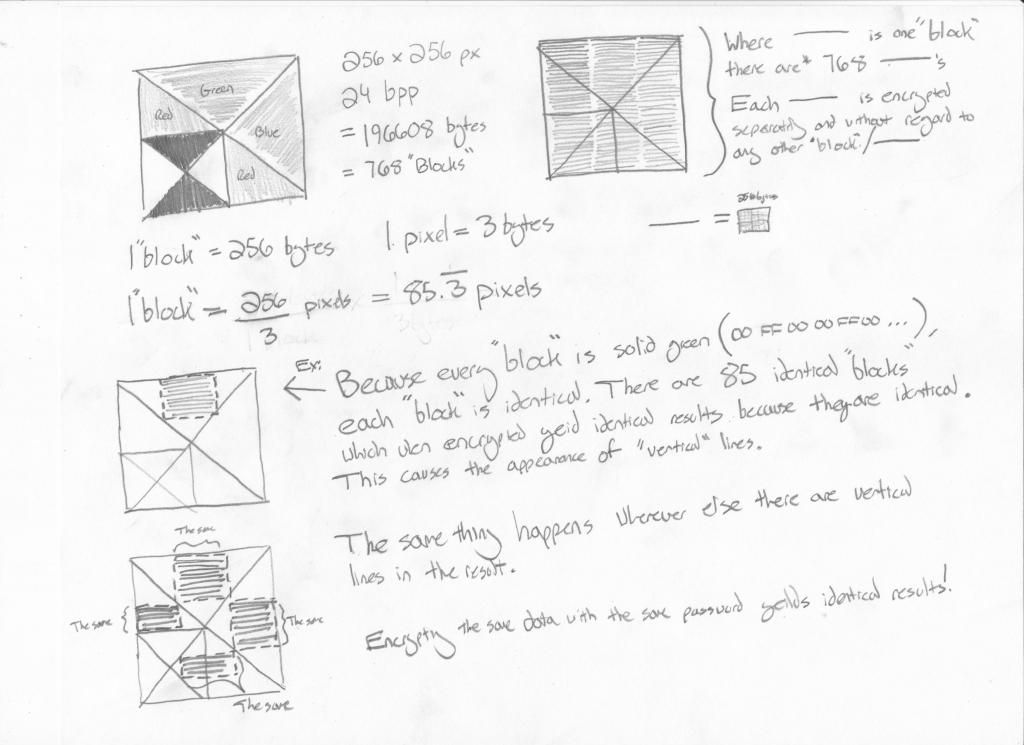 Green
Red
Blue
Red
256 x 256 px
24 bpp
= 196608 bytes
= 768 "Blocks"
Where —— is one "block"
there are* 768 ——'s
Each —— is encrypted
seperatly and without regard to
any other "block"/——
—— =
256 bytes
1 "block" = 256 bytes
1 pixel = 3 bytes
1 "block" = 256/3 pixels = 85.3̅ pixels
Ex:
Because every "block" is solid green (00 FF 00 00 FF 00 ...),
each "block" is identical. There are 85 identical "blocks"
which when encrypted yeid identical results because they are identical.
This causes the appearance of "vertical" lines.
The same thing happens wherever else there are vertical
lines in the result.
Encrypting the same data with the same password yeilds identical results!
The same
The same
The same
The same